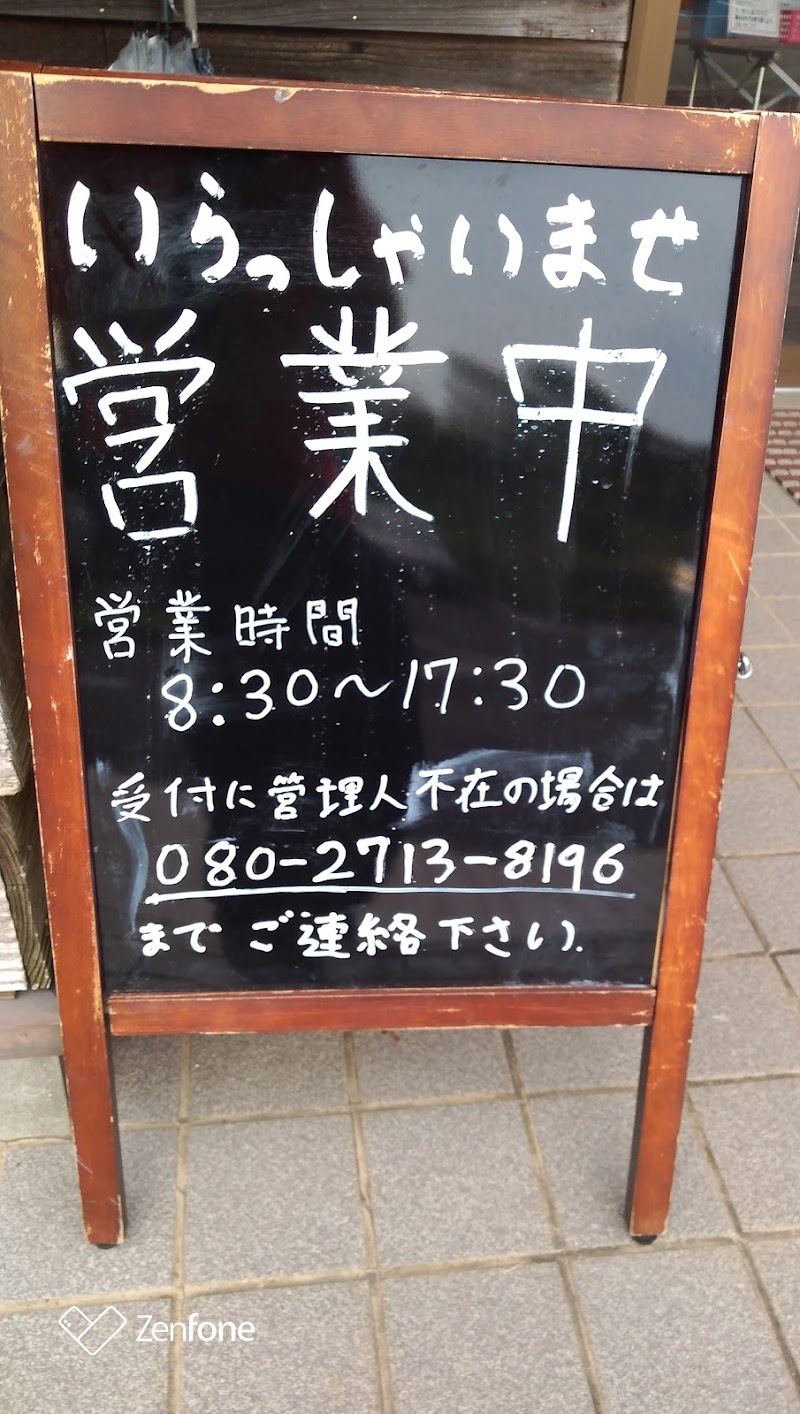 いらっしゃいませ
営業中
営業時間
8:30〜17:30
受付に管理人不在の場合は
080-2713-8196
までご連絡下さい.
Zenfone